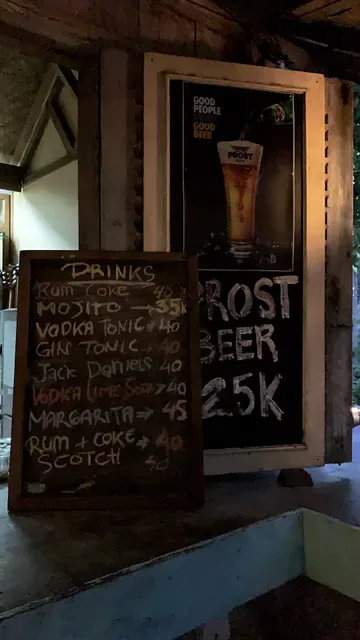 GOOD
PEOPLE
GOOD
BEER
PROST
PROST
BEER
25K
DRINKS
Rum Coke 40
MOJITO → 35K
VODKA TONIC → 40
GIN TONIC → 40
Jack Daniels 40
VODKA LIME SODA → 40
MARGARITA → 45
RUM + COKE → 40
SCOTCH 40